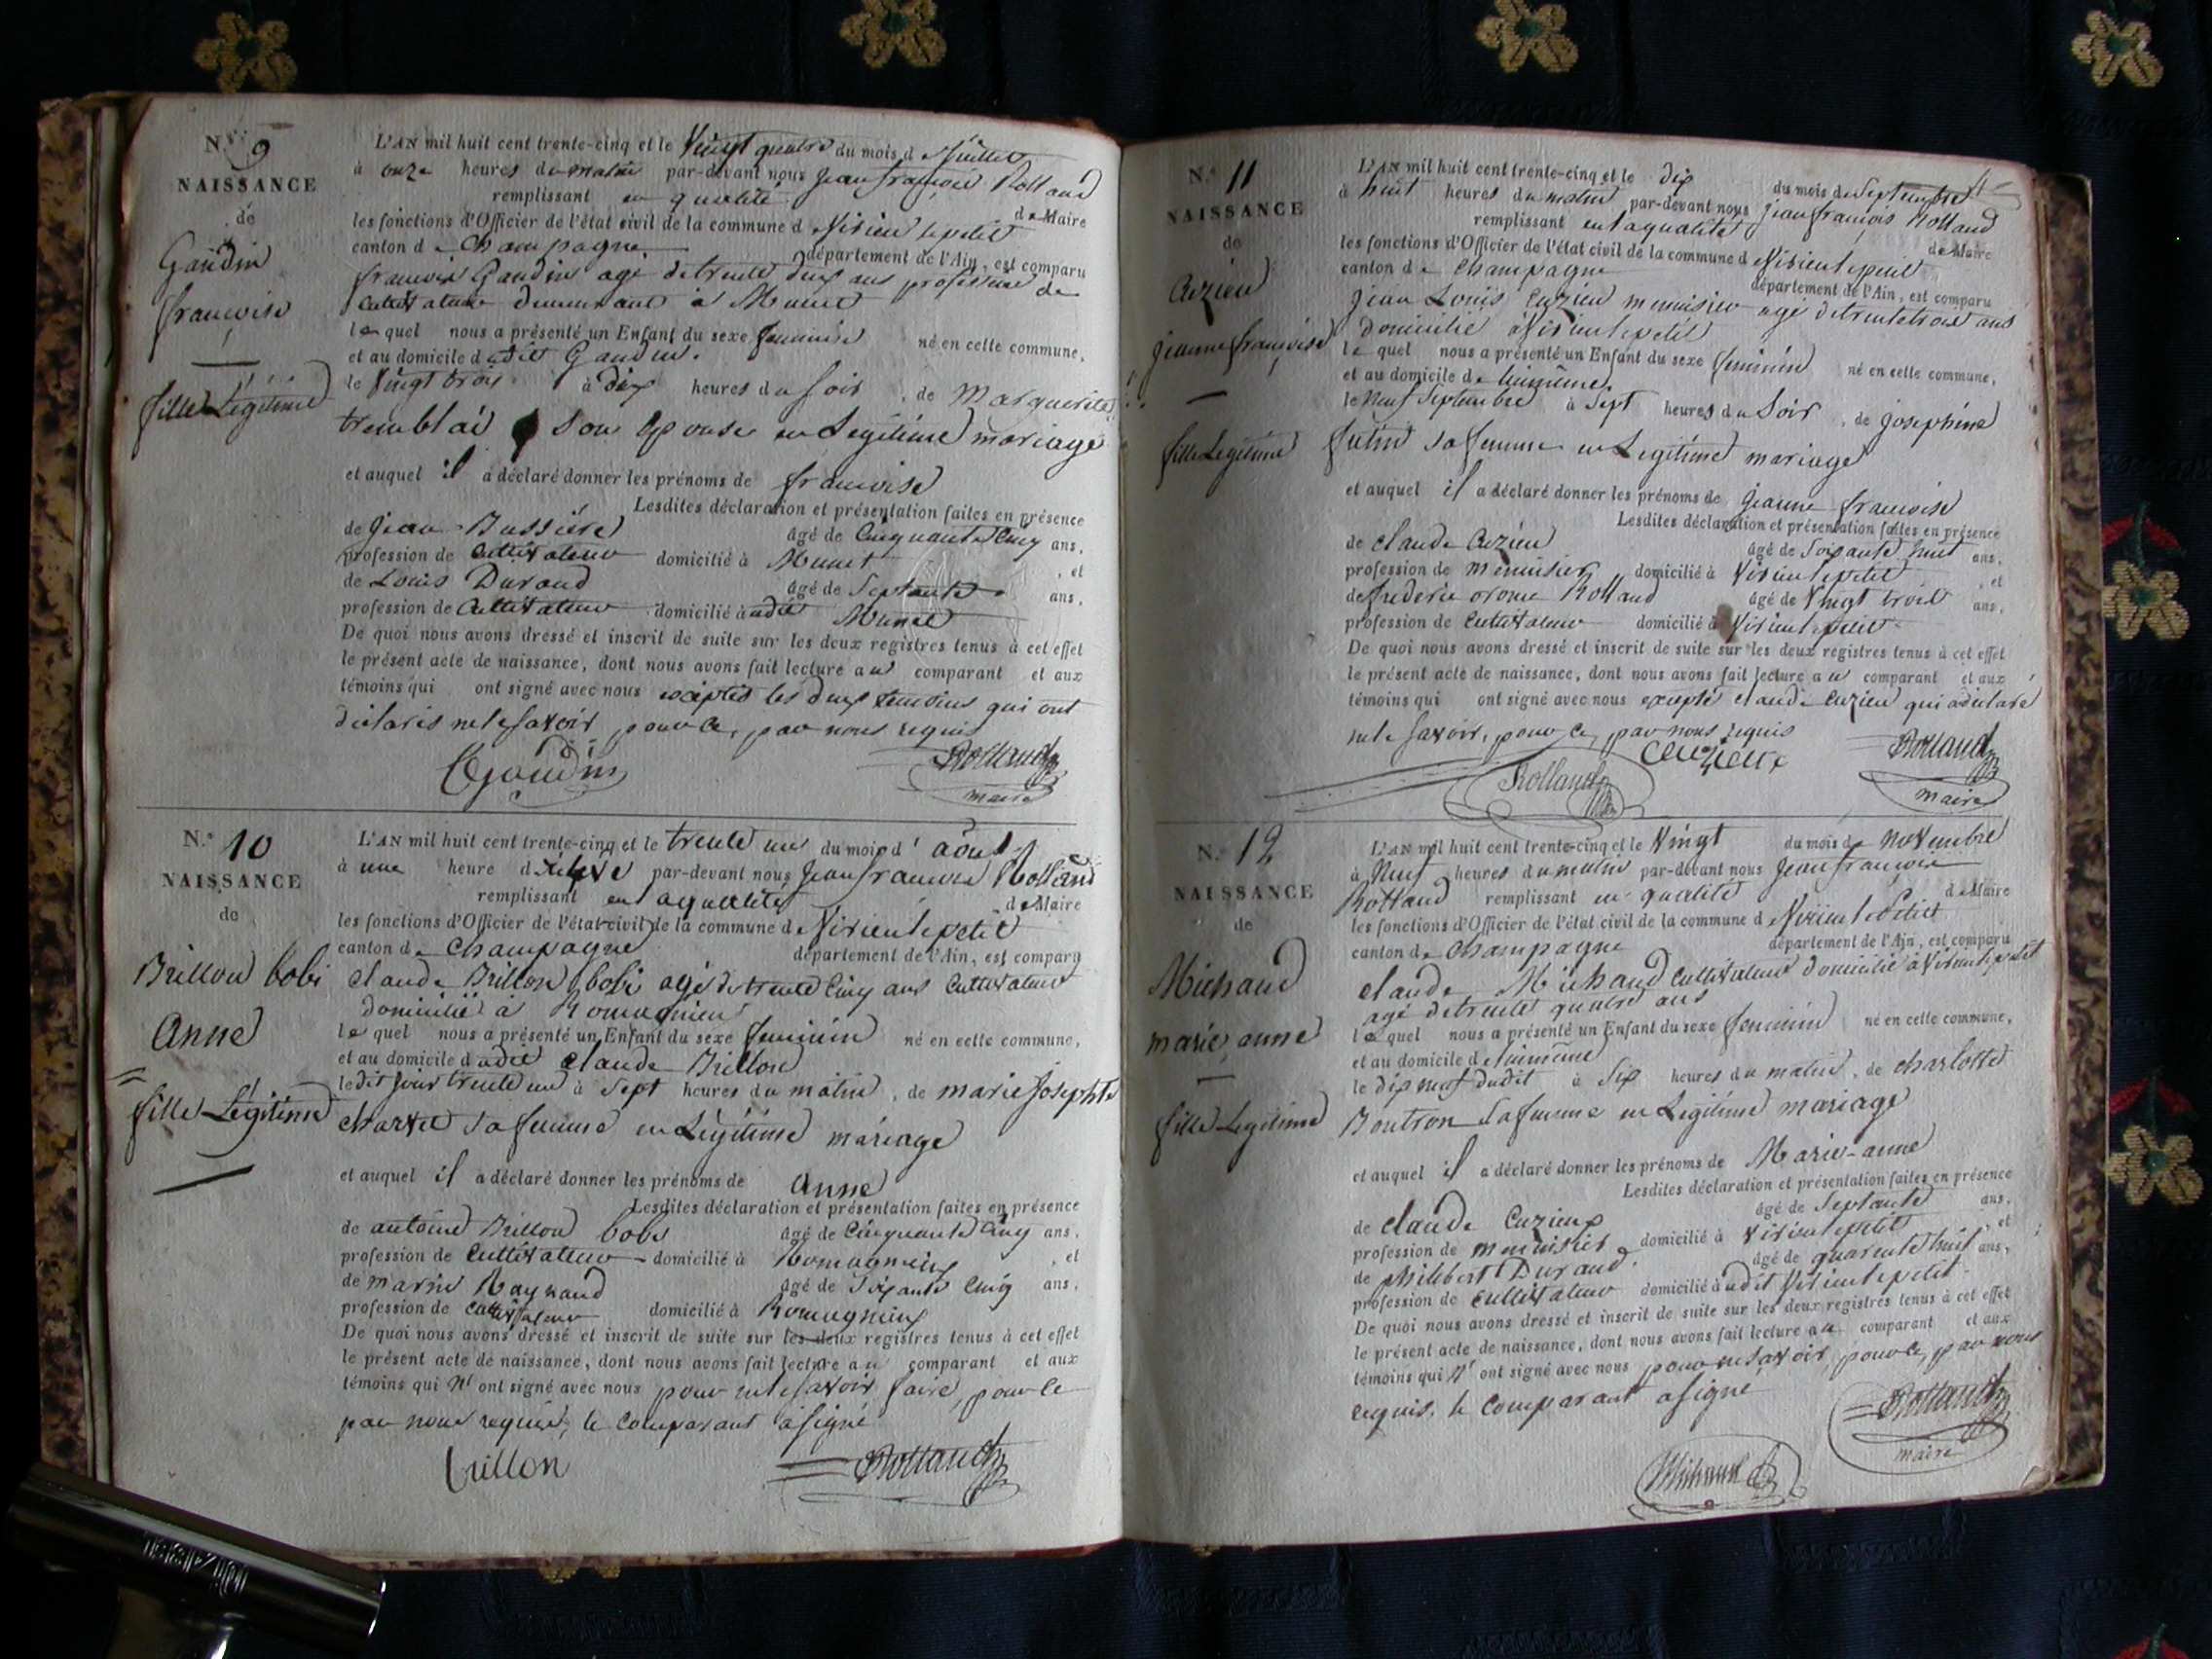 N.° 9
NAISSANCE
de
Gaudin
françoise
fille Légitime
L'AN mil huit cent trente-cinq et le Vingt quatre du mois d e Juillet
à onze heures du matin par-devant nous jean françois Rolland
remplissant en qualité de Maire
les fonctions d'Officier de l'état civil de la commune d e Virieu le petit
canton d e Champagne département de l'Ain, est comparu
françois Gaudin agé de trente deux ans profession de
Cultivateur demeurant à Munet
le quel nous a présenté un Enfant du sexe feminin né en cette commune,
et au domicile d udit Gaudin.
le Vingt trois à dix heures du soir, de Marguerite
tremblai son Epouse en Legitime mariage
et auquel il a déclaré donner les prénoms de françoise
Lesdites déclaration et présentation faites en présence
de jean Bussiere âgé de Cinquante Cinq ans,
profession de Cultivateur domicilié à Munet, et
de Louis Durand âgé de Septante ans,
profession de Cultivateur domicilié à udit Munet
De quoi nous avons dressé et inscrit de suite sur les deux registres tenus à cet effet
le présent acte de naissance, dont nous avons fait lecture a u comparant et aux
témoins qui ont signé avec nous exceptés les deux temoins qui ont
déclarés ne le savoir, pour ce, par nous requis
Gaudin Rolland
maire
N.° 10
NAISSANCE
de
Brillon bobi
Anne
fille Légitime
L'AN mil huit cent trente-cinq et le trente un du mois d' août
à une heure d par-devant nous Jean françois Rolland
remplissant en la qualité de Maire
les fonctions d'Officier de l'état civil de la commune d e Virieu le petit
canton d e Champagne département de l'Ain, est comparu
Claude Brillon bobi agé de trente Cinq ans Cultivateur
domicilié à Romagnieu
le quel nous a présenté un Enfant du sexe feminin né en cette commune,
et au domicile d udit Claude Brillon
le dit jour trente un à Sept heures du matin, de marie josephte
charvet sa femme en Légitime mariage
et auquel il a déclaré donner les prénoms de Anne
Lesdites déclaration et présentation faites en présence
de antoine Brillon bobi âgé de Cinquante Cinq ans,
profession de Cultivateur domicilié à Romagnieu, et
de marin Raynaud âgé de Soixante Cinq ans,
profession de Cultivateur domicilié à Romagnieu
De quoi nous avons dressé et inscrit de suite sur les deux registres tenus à cet effet
le présent acte de naissance, dont nous avons fait lecture a u comparant et aux
témoins qui n' ont signé avec nous pour ne le savoir faire, pour ce
par nous requis, le Comparant a signé
brillon Rolland
N.° 11
NAISSANCE
de
Cuzieu
jeanne françoise
fille Legitime
L'AN mil huit cent trente-cinq et le dix du mois de Septembre
à huit heures du matin par-devant nous jean françois Rolland
remplissant en la qualité de Maire
les fonctions d'Officier de l'état civil de la commune d e Virieu le petit
canton d e Champagne département de l'Ain, est comparu
jean Louis Cuzieu menuisier agé de trente trois ans
domicilié à Virieu le petit
le quel nous a présenté un Enfant du sexe feminin né en cette commune,
et au domicile d e luimême
le neuf Septembre à Sept heures du Soir, de josephine
sa femme en Legitime mariage
et auquel il a déclaré donner les prénoms de jeanne françoise
Lesdites déclaration et présentation faites en présence
de claude Cuzieu âgé de Soixante huit ans,
profession de menuisier domicilié à Virieu le petit, et
de frederic Rolland âgé de Vingt trois ans,
profession de Cultivateur domicilié à Virieu le petit
De quoi nous avons dressé et inscrit de suite sur les deux registres tenus à cet effet
le présent acte de naissance, dont nous avons fait lecture a u comparant et aux
témoins qui ont signé avec nous excepté claude Cuzieu qui a déclaré
ne le savoir, pour ce, par nous requis
Cuzieux Rolland
Rolland maire
N.° 12
NAISSANCE
de
Michaud
marie anne
fille Legitime
L'AN mil huit cent trente-cinq et le Vingt du mois de novembre
à Neuf heures du matin par-devant nous Jean françois
Rolland remplissant en qualité de Maire
les fonctions d'Officier de l'état civil de la commune d e Virieu le Petit
canton d e Champagne département de l'Ain, est comparu
claude Michaud Cultivateur domicilié à Virieu le petit
agé de trente quatre ans
le quel nous a présenté un Enfant du sexe feminin né en cette commune,
et au domicile d e luimême
le dix neuf dudit à Six heures du matin, de charlotte
Boutron Sa femme en Legitime mariage
et auquel il a déclaré donner les prénoms de Marie-anne
Lesdites déclaration et présentation faites en présence
de claude Cuzieux âgé de Septante ans,
profession de menuisier domicilié à Virieu le petit, et
de philibert Durand âgé de quarente huit ans,
profession de Cultivateur domicilié à udit Virieu le petit
De quoi nous avons dressé et inscrit de suite sur les deux registres tenus à cet effet
le présent acte de naissance, dont nous avons fait lecture a u comparant et aux
témoins qui n' ont signé avec nous pour ne savoir, pour ce, par nous
requis, le Comparant a signé
Rolland
maire
Michaud